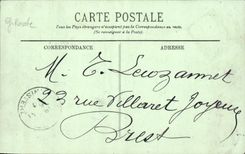 CARTE POSTALE
Tous les Pays étrangers n'acceptent pas la Correspondance au recto.
(Se renseigner à la Poste)
CORRESPONDANCE
ADRESSE
M. T. Leozannet
23 rue Villaret Joyeuse
Brest